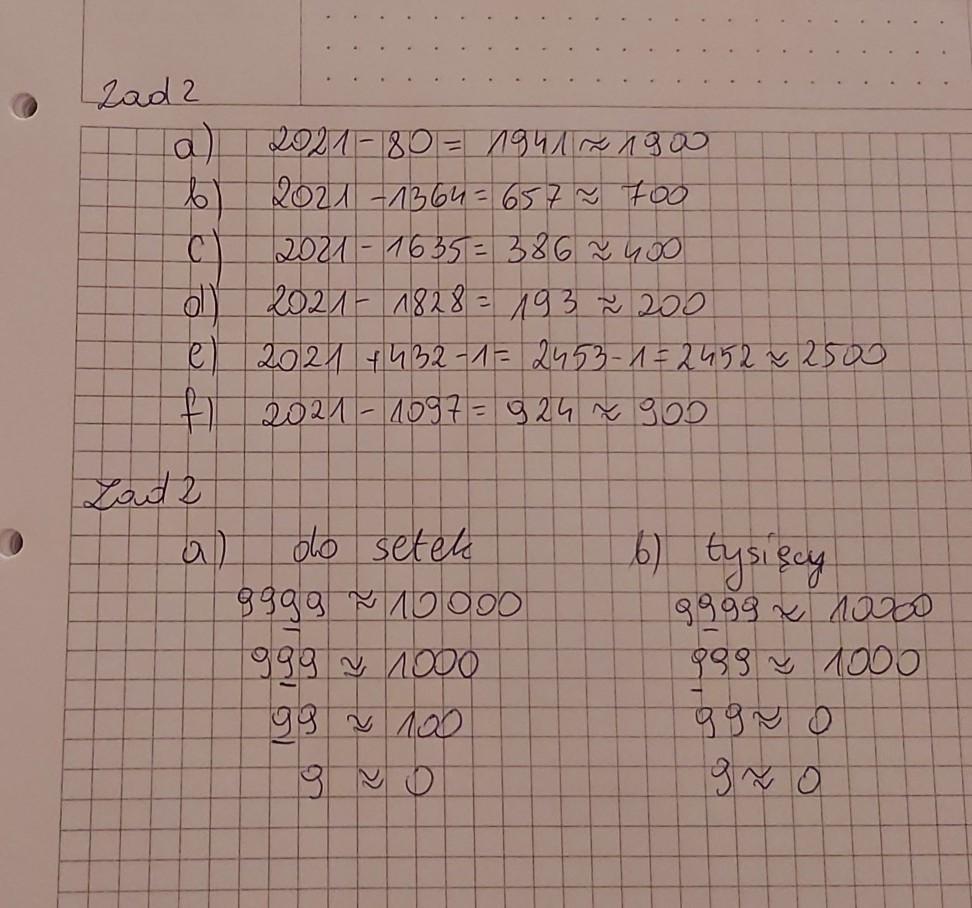 Zad 2
a) 2021 - 80 = 1941 ≈ 1900
b) 2021 - 1364 = 657 ≈ 700
c) 2021 - 1635 = 386 ≈ 400
d) 2021 - 1828 = 193 ≈ 200
e) 2021 + 432 - 1 = 2453 - 1 = 2452 ≈ 2500
f) 2021 - 1097 = 924 ≈ 900
Zad 2
a) do setek b) tysięcy
9999 ≈ 10000 9999 ≈ 10000
999 ≈ 1000 999 ≈ 1000
99 ≈ 100 99 ≈ 0
9 ≈ 0 9 ≈ 0